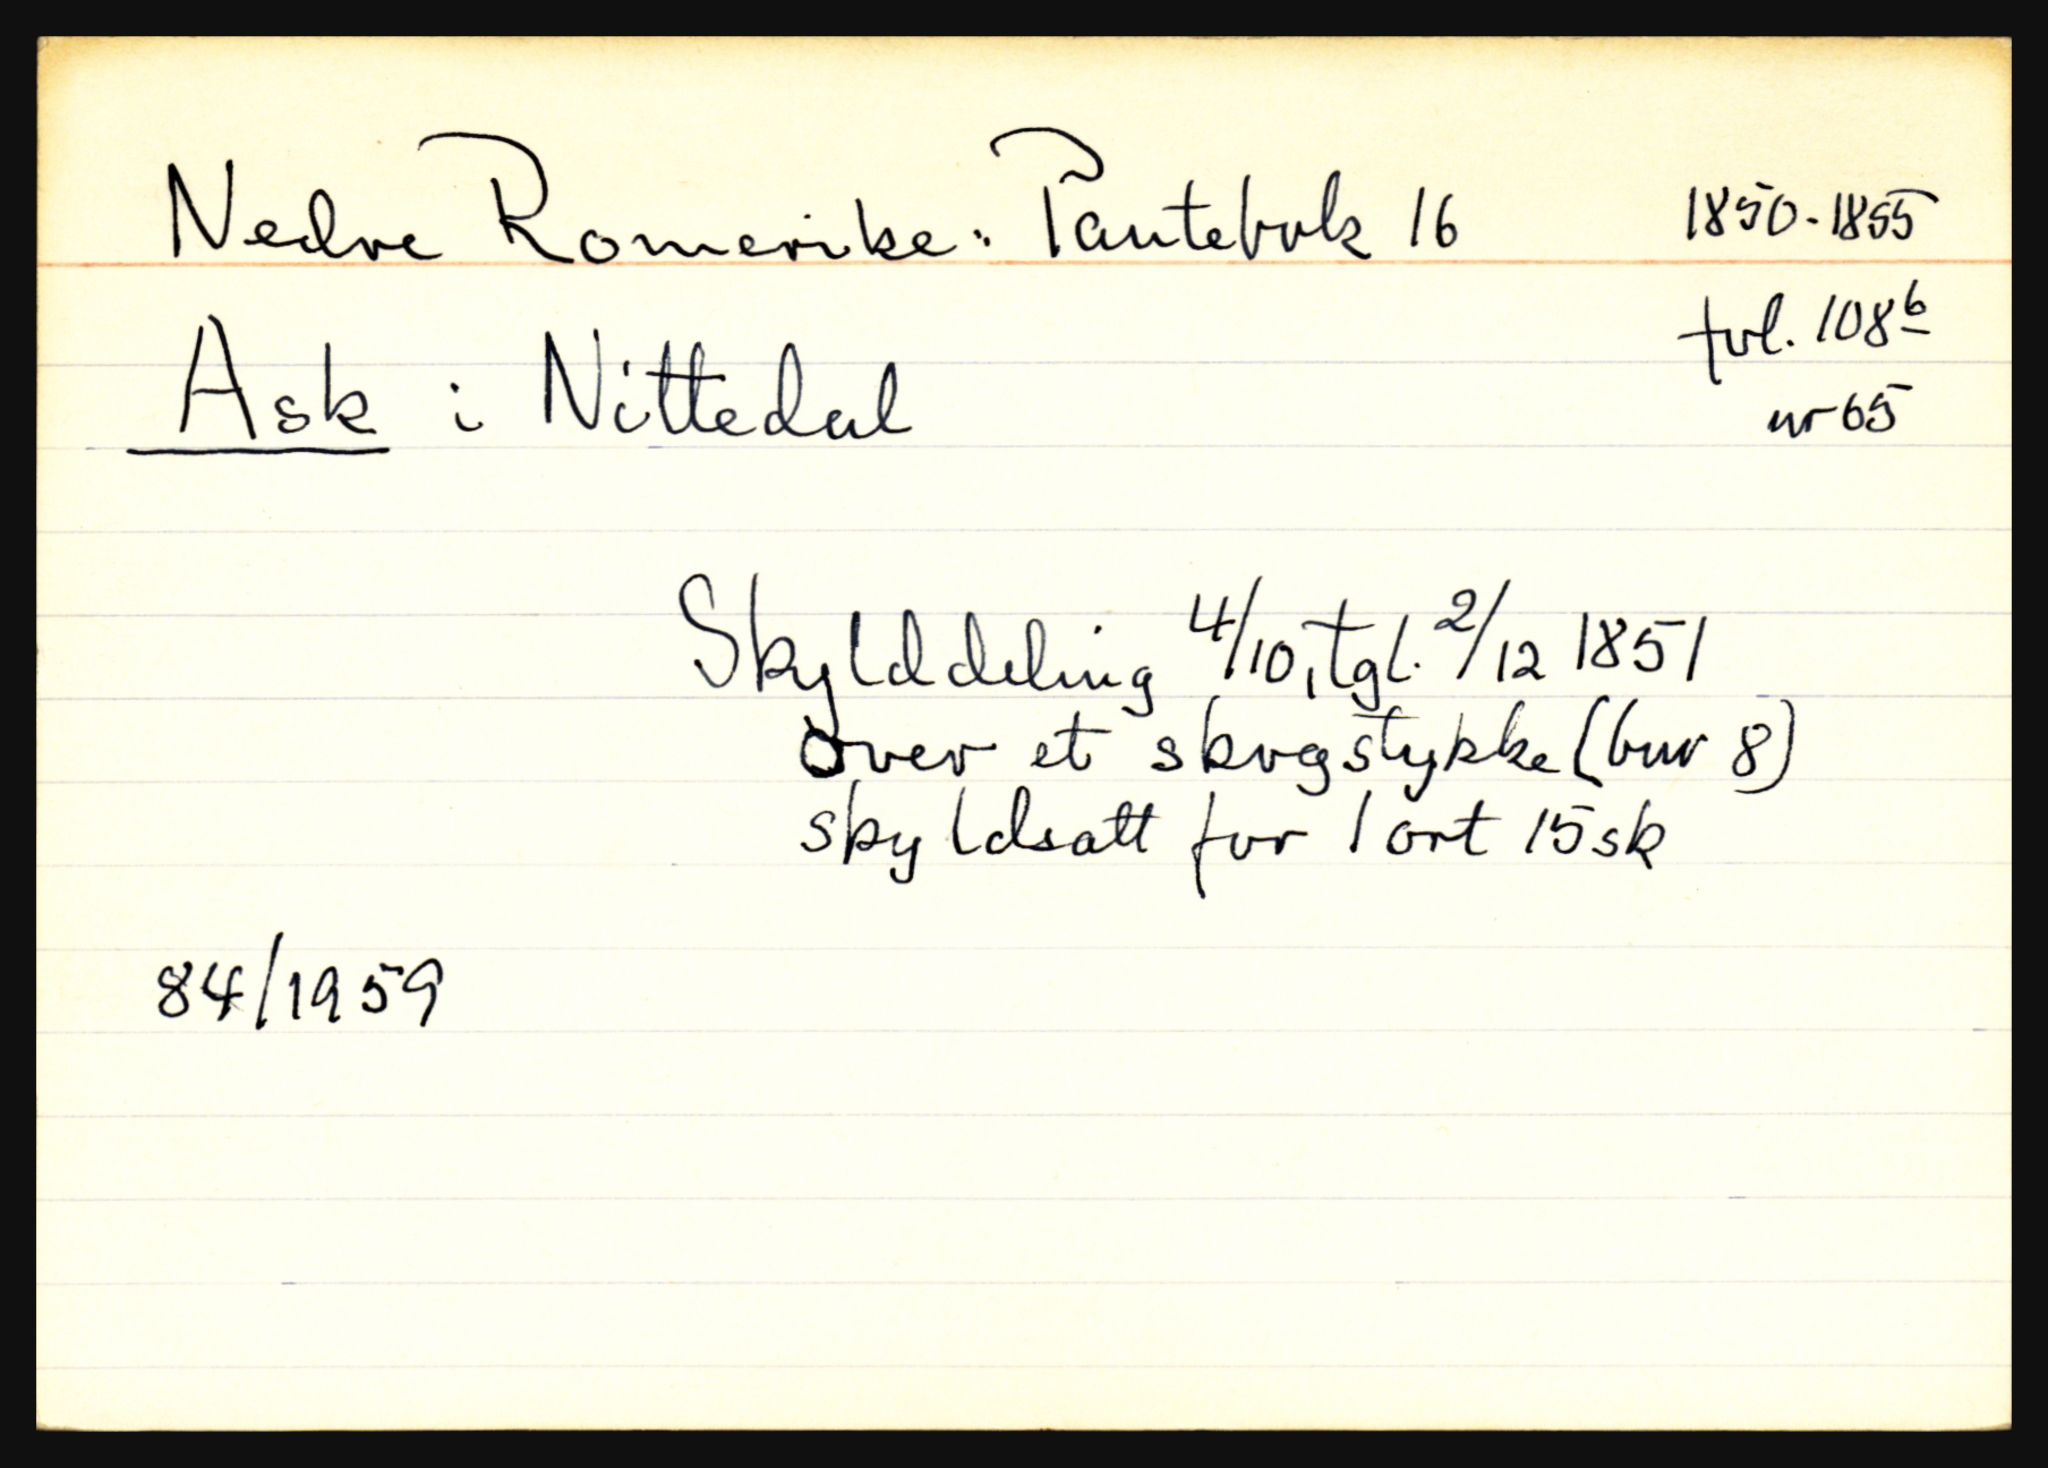 Nedre Romerike. Pantebok 16 1850-1855
fol. 108b
Ask i Nittedal
nr 65
Skylddeling 4/10, tgl. 2/12 1851
over et skogstykke (bnr 8)
skyldsatt for 1 ort 15 sk
84/1959